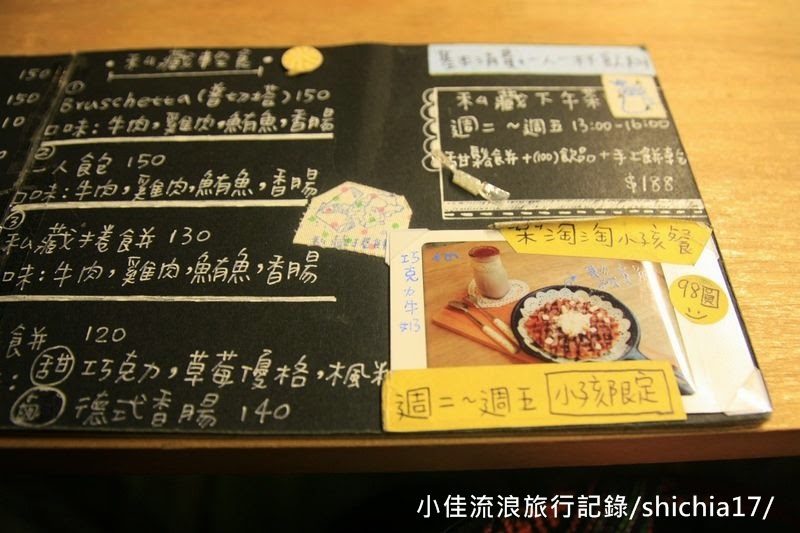 150
150
10
• 私藏輕食 •
① Bruschetta(普切塔)150
口味:牛肉,雞肉,鮪魚,香腸
② 一人食包 150
口味:牛肉,雞肉,鮪魚,香腸
③ 私藏捲餅 130
口味:牛肉,雞肉,鮪魚,香腸
食餅 120
甜 巧克力,草莓優格,楓
鹹 德式香腸 140
基本消費:一人一杯飲料
私藏下午茶
週二~週五 13:00-16:00
甜鬆餅+(100)飲品+手工餅乾
$188
樂淘淘小孩餐
巧克力牛
98圓
週二~週五 小孩限定
小佳流浪旅行記錄/shichia17/